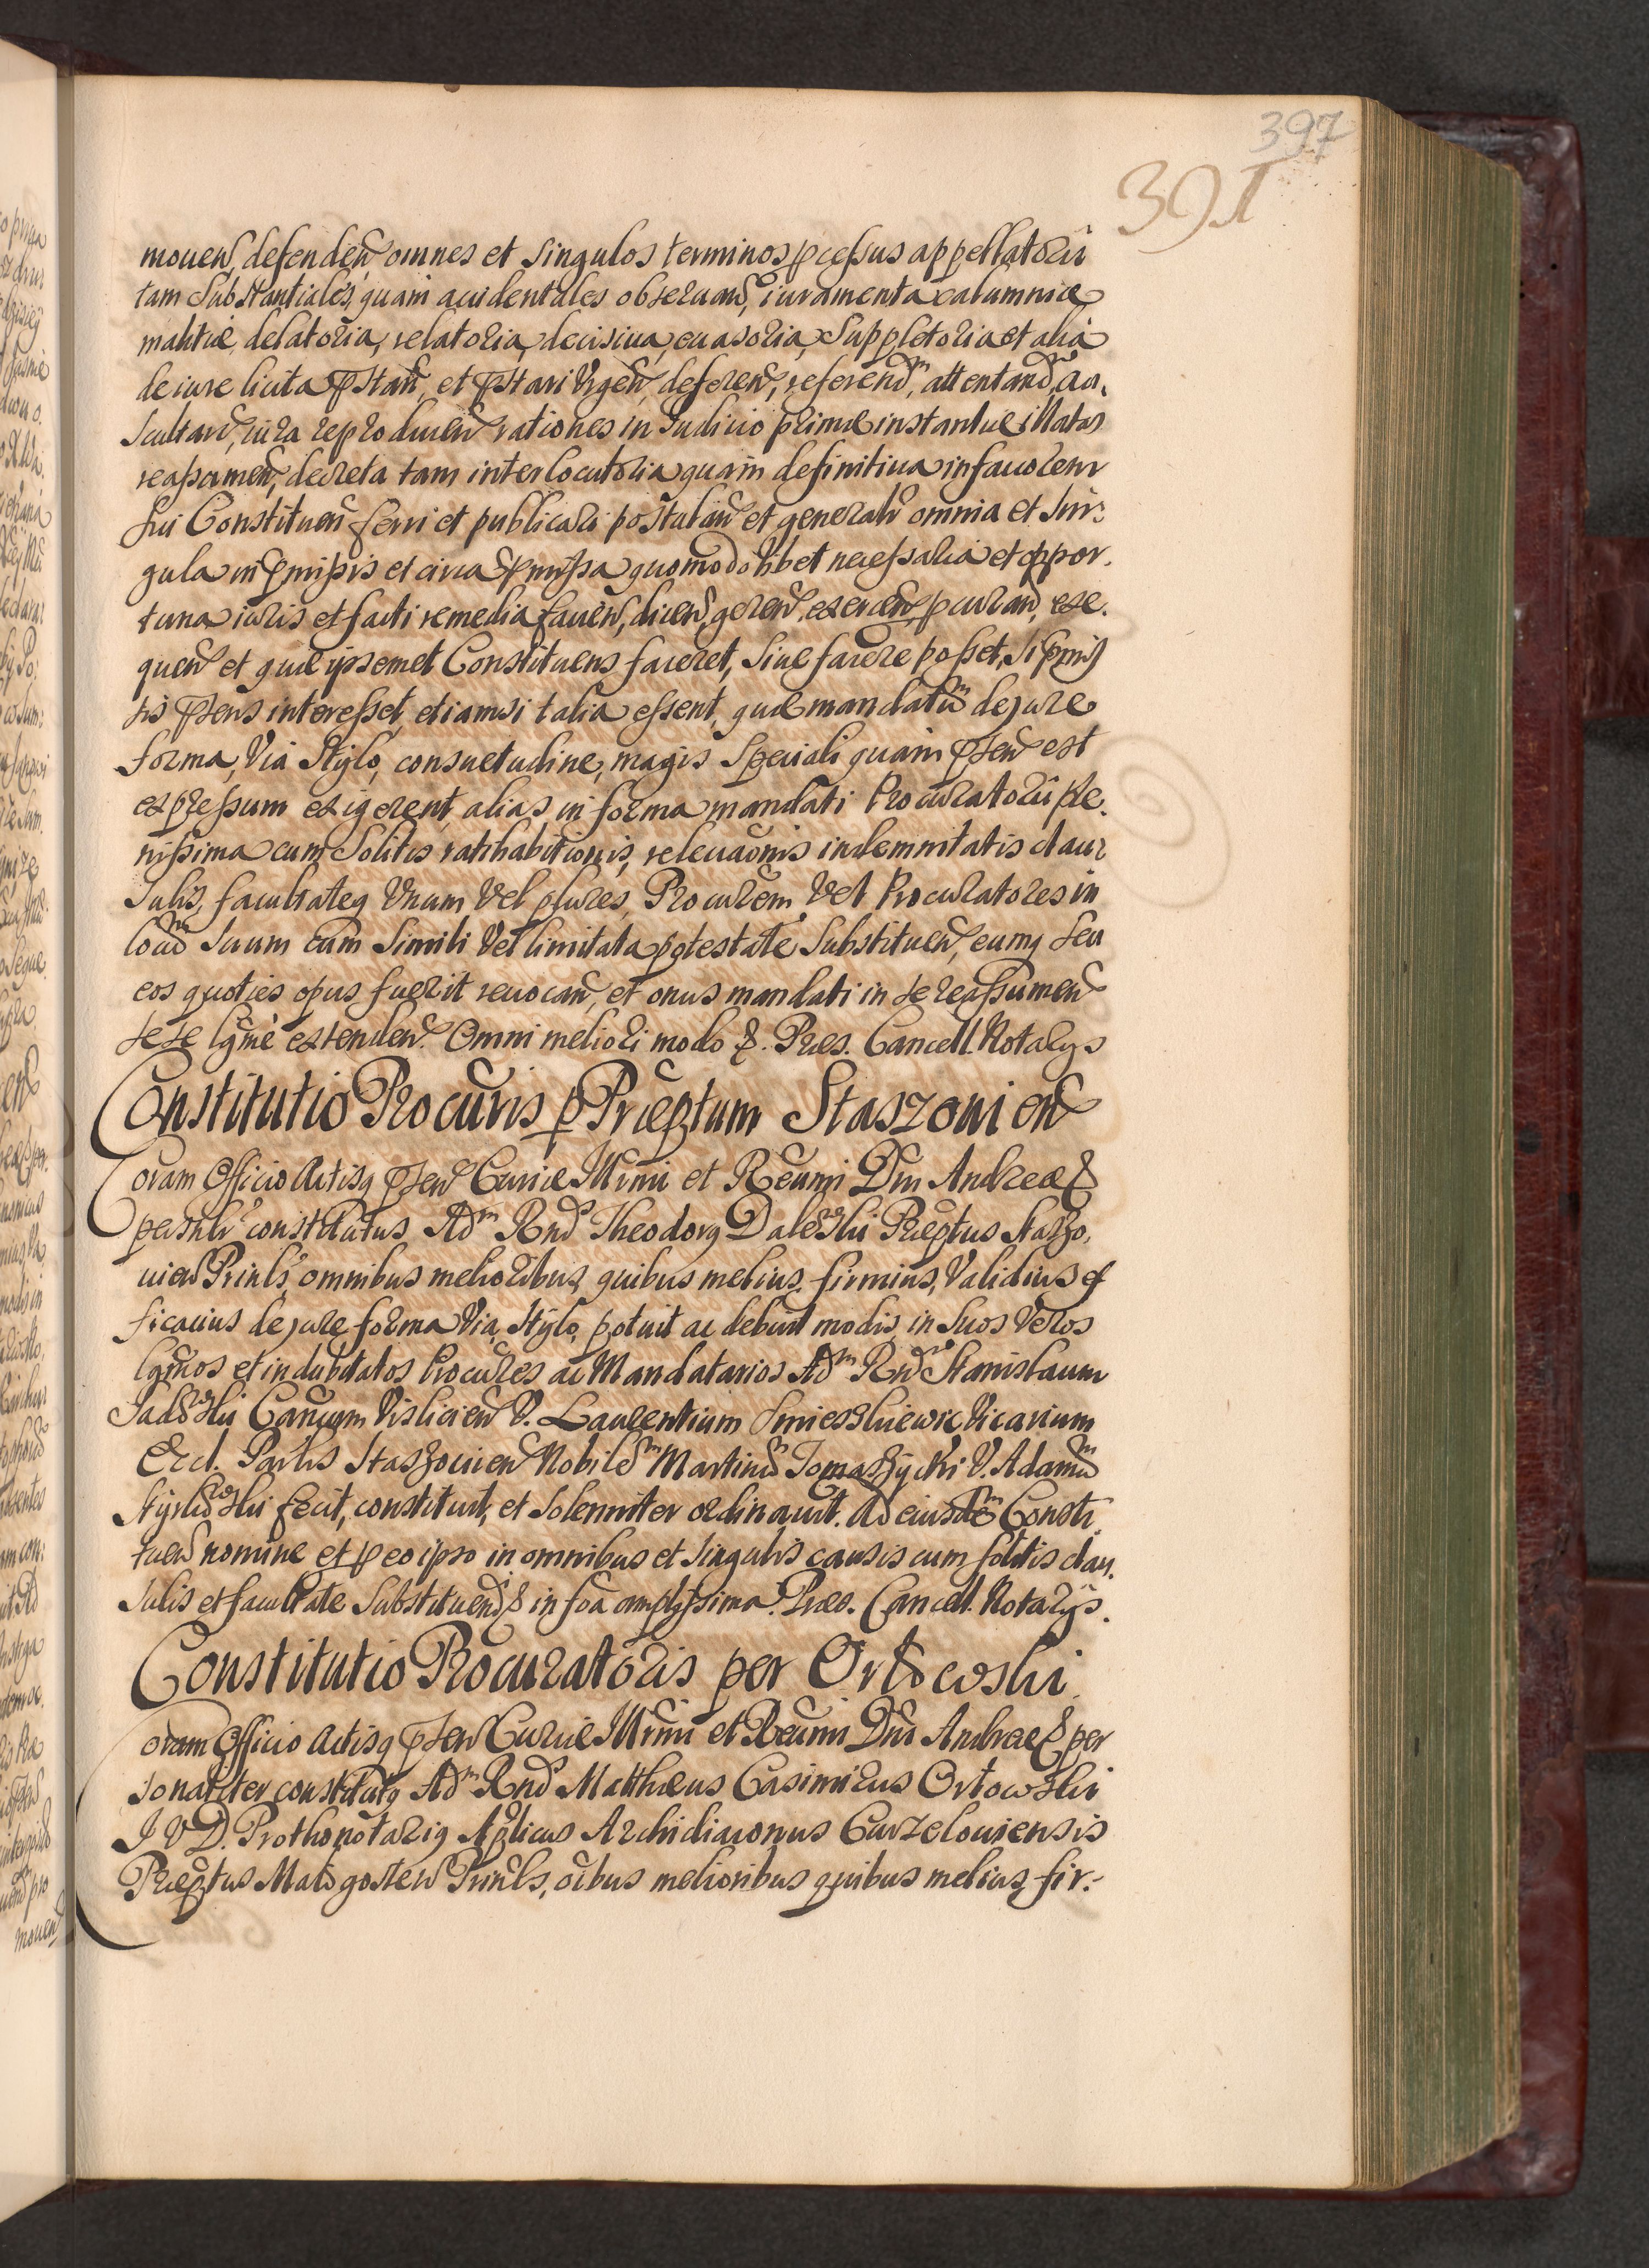 397
391
mouen, defenden omnes et singulos terminos pcessus appellatorii
tam substantiales, quam accidentales obseruan, iuramenta calumniæ
malitiæ delatoria, relatoria, decisiua, euasoria, suppletoria et alia
de iure licita pstan, et pstari Vrgen, deferen, referend, attentand, au,
scultari, iura reproducen rationes in Judicio primæ instantiæ illatas
reassumen, decreta tam interlocutoria quam definitiua in fauorem
sui Constituen ferri et publicari postulan et generalr omnia et sin:
gula in pmissis et circa pmissa quomodolibet necessaria et oppor.
tuna iuris et facti remedia facien, dicen, geren, exercen, pcuran, exe.
quen et quæ ipsemet Constituens faceret, siue facere posset, si pmis
sis psens interesset, etiamsi talia essent, quæ mandatũ de jure
forma, Via Stylo, consuetudine, magis Speciali quam psen est
expressum exigerent, alias in forma mandati Procuratorii ple.
nissima cum Solitis ratihabitionis, releuãonis indemnitatis clau
sulis, facultateq Vnum Vel plures, Procurem, Vel Procuratores in
locũ suum cum Simili Vel limitata potestate Substituen, eumq seu
eos quoties opus fuerit reuocan, et onus mandati in se reassumen
sese lgmè extenden. Omni meliori modo &. Præs. Cancell. Notarys
Constitutio Procuris p Præptum Staszouien
Coram Officio Actisq psen Curiæ Illrmi et Reumi Dni Andreæ &
persnlr constitutus Adm Rnd Theodorq Daleski Præptus Staszo,
uien Prinls, omnibus melioribus, quibus melius, firmius, Validius ef
ficacius de jure forma Via, Stylo, potuit ac debuit modis, in suos Veros
lgmos et indubitatos Procures ac Mandatarios Adm Rnd Stanislaum
Canucum Vislicien V. Laurentium Vicarium
Eccl. Parlis Staszouien Nobilem Martinũ Tomaszycki V. Adamũ
fecit, constituit, et solenniter ordinauit. Ad eiusdẽ Consti.
tuen nomine et p eo ipso in omnibus et singulis causis cum solitis clau.
sulis et facultate Substituendi & in foa amplissima. Præs. Cancell. Notarys.
Constitutio Procuratoris per Orłowski
Coram Officio Actisq psen Curiæ Illrmi et Reumi Dni Andreæ & per
sonaliter constitutq Adm Rnd Matthæus Casimirus Orłowski
J V D. Prothonotariq Aplicus Archidiaconus Curzelouiensis
Præptus Małogosten Prinls, oibus melioribus quibus melius, fir:-